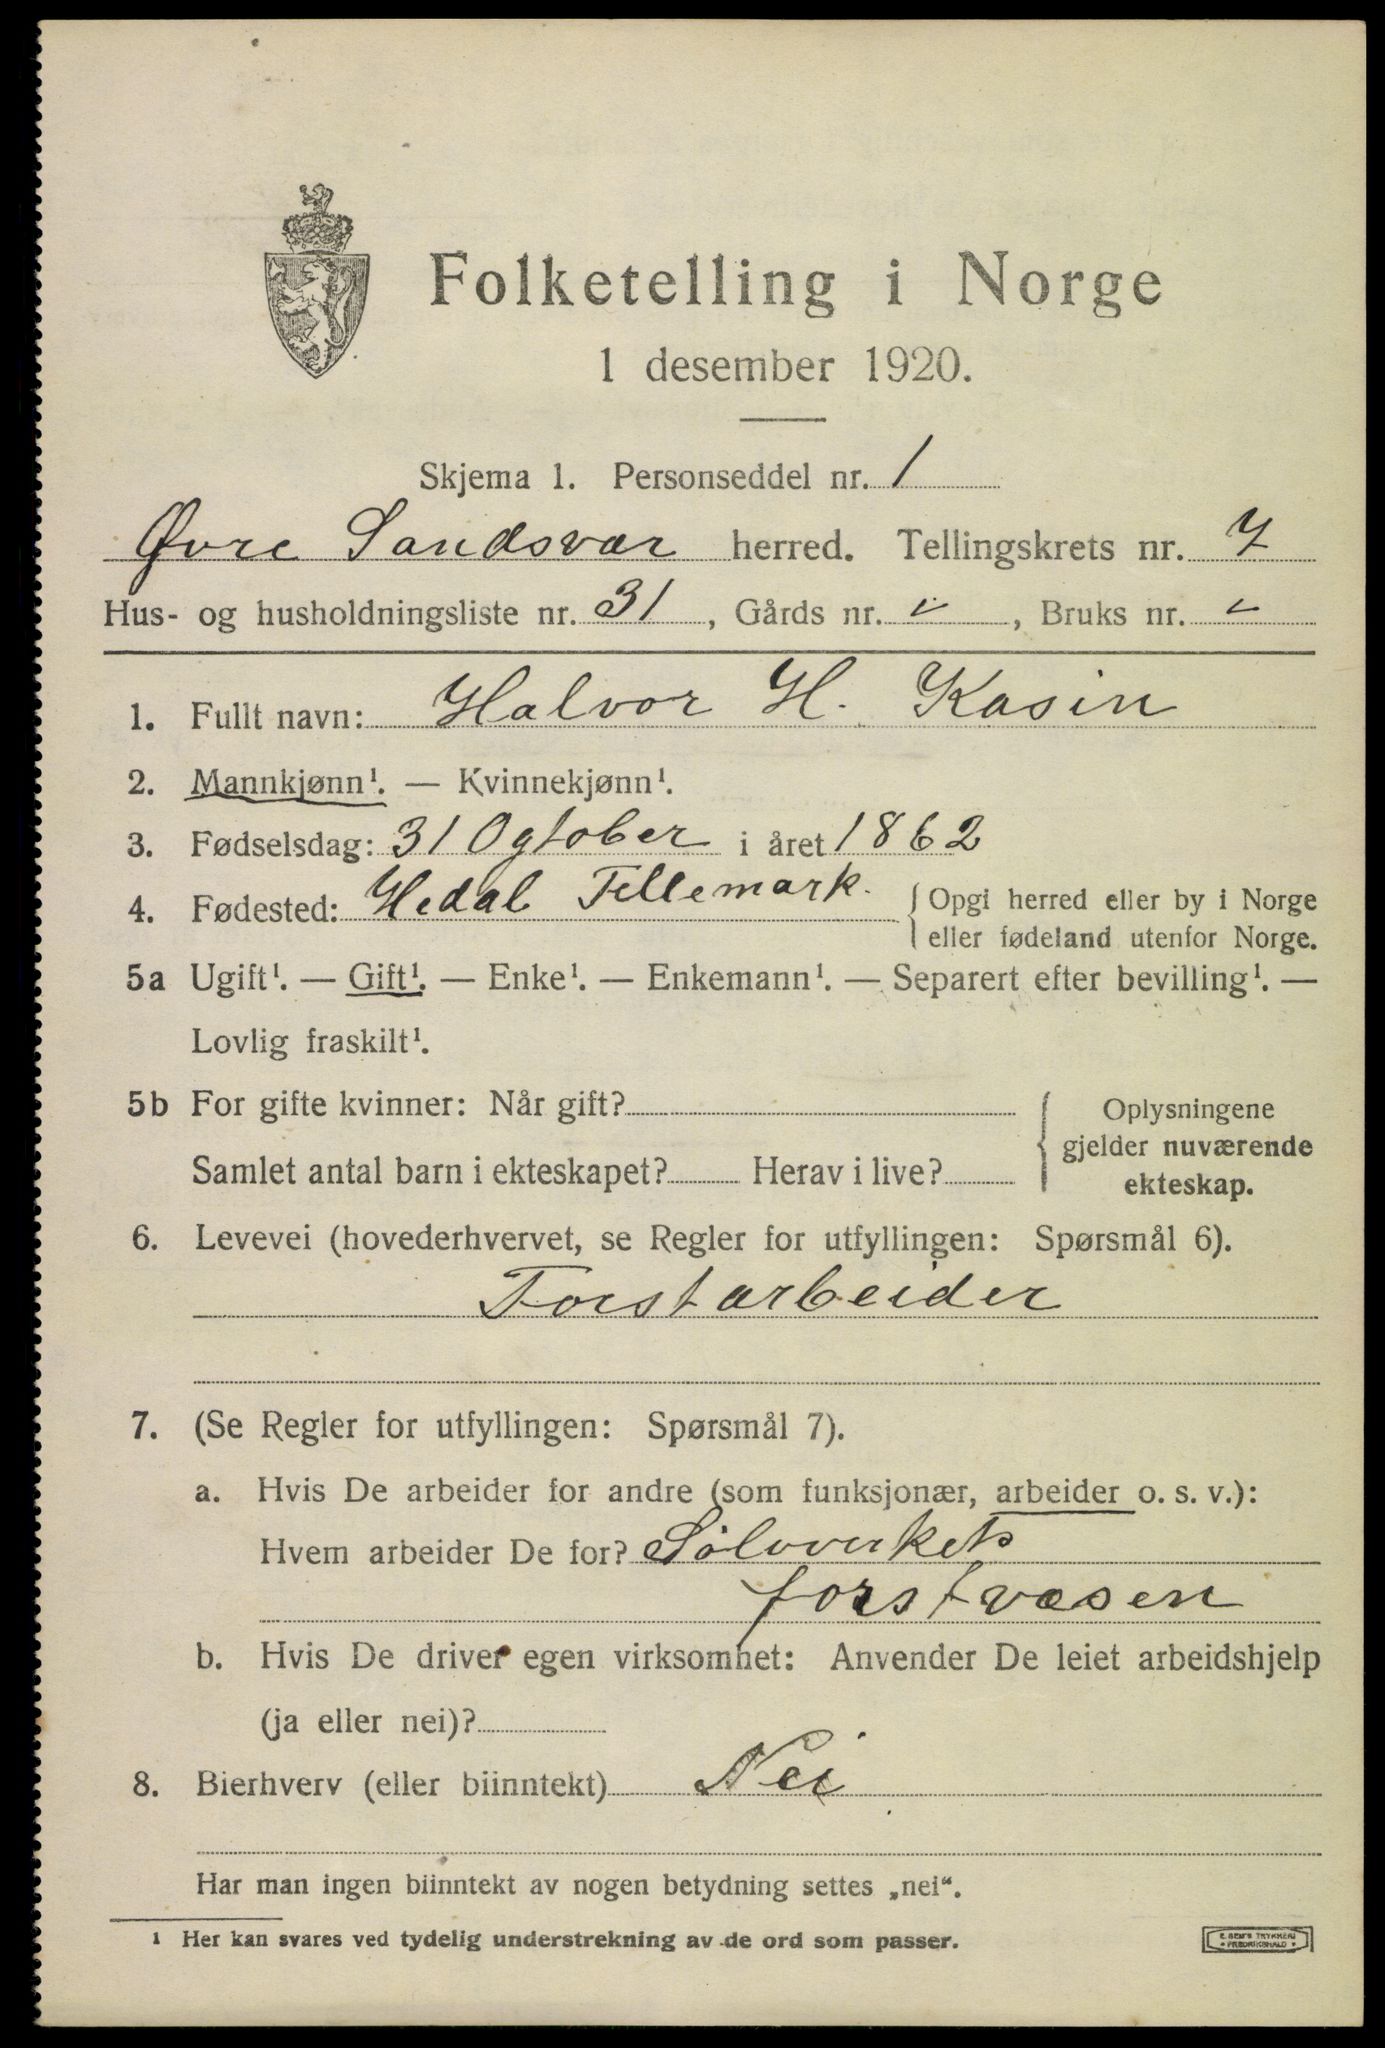 Folketelling i Norge
1 desember 1920.
Skjema 1. Personseddel nr. 1
Øvre Sandsvær herred. Tellingskrets nr. 7
Hus- og husholdningsliste nr. 31, Gårds nr. ں, Bruks nr. ں
1. Fullt navn: Halvor H. Kasin
2. Mannkjønn¹. — Kvinnekjønn¹.
3. Fødselsdag: 31 Ogtober i året 1862
4. Fødested: Hedal Tellemark. { Opgi herred eller by i Norge
eller fødeland utenfor Norge.
5a Ugift¹. — Gift¹. — Enke¹. — Enkemann¹. — Separert efter bevilling¹. —
Lovlig fraskilt¹.
5b For gifte kvinner: Når gift?
Samlet antal barn i ekteskapet? Herav i live?
Oplysningene
gjelder nuværende
ekteskap.
6. Levevei (hovederhvervet, se Regler for utfyllingen: Spørsmål 6).
Forstarbeider
7. (Se Regler for utfyllingen: Spørsmål 7).
a. Hvis De arbeider for andre (som funksjonær, arbeider o. s. v.):
Hvem arbeider De for? Sølvverkets
forstvæsen
b. Hvis De driver egen virksomhet: Anvender De leiet arbeidshjelp
(ja eller nei)?
8. Bierhverv (eller biinntekt) Nei
Har man ingen biinntekt av nogen betydning settes „nei“.
¹ Her kan svares ved tydelig understrekning av de ord som passer.
E. SEM'S TRYKKERI
• FREDRIKSHALD •